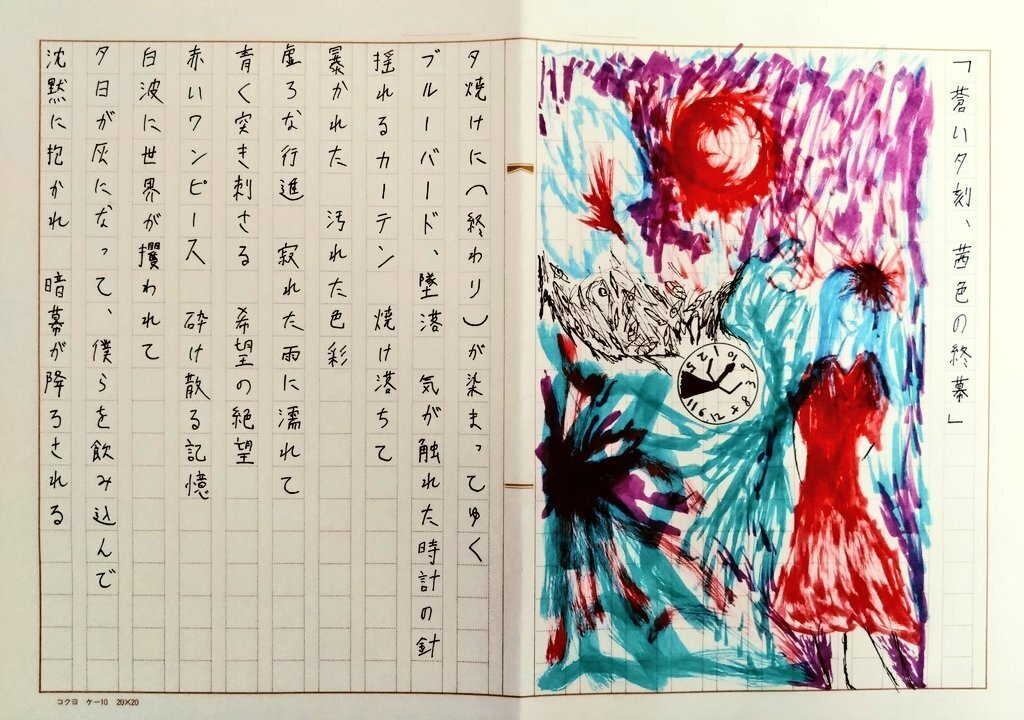 「蒼い夕刻、茜色の終幕」
夕焼けに(終わり)が染まってゆく
ブルーバード、墜落 気が触れた時計の針
揺れるカーテン 焼け落ちて
暴かれた 汚れた色彩
虚ろな行進 寂れた雨に濡れて
青く突き刺さる 希望の絶望
赤いワンピース 砕け散る記憶
白波に世界が攫われて
夕日が灰になって、僕らを飲み込んで
沈黙に抱かれ 暗幕が降ろされる
コクヨ ケー10 20×20